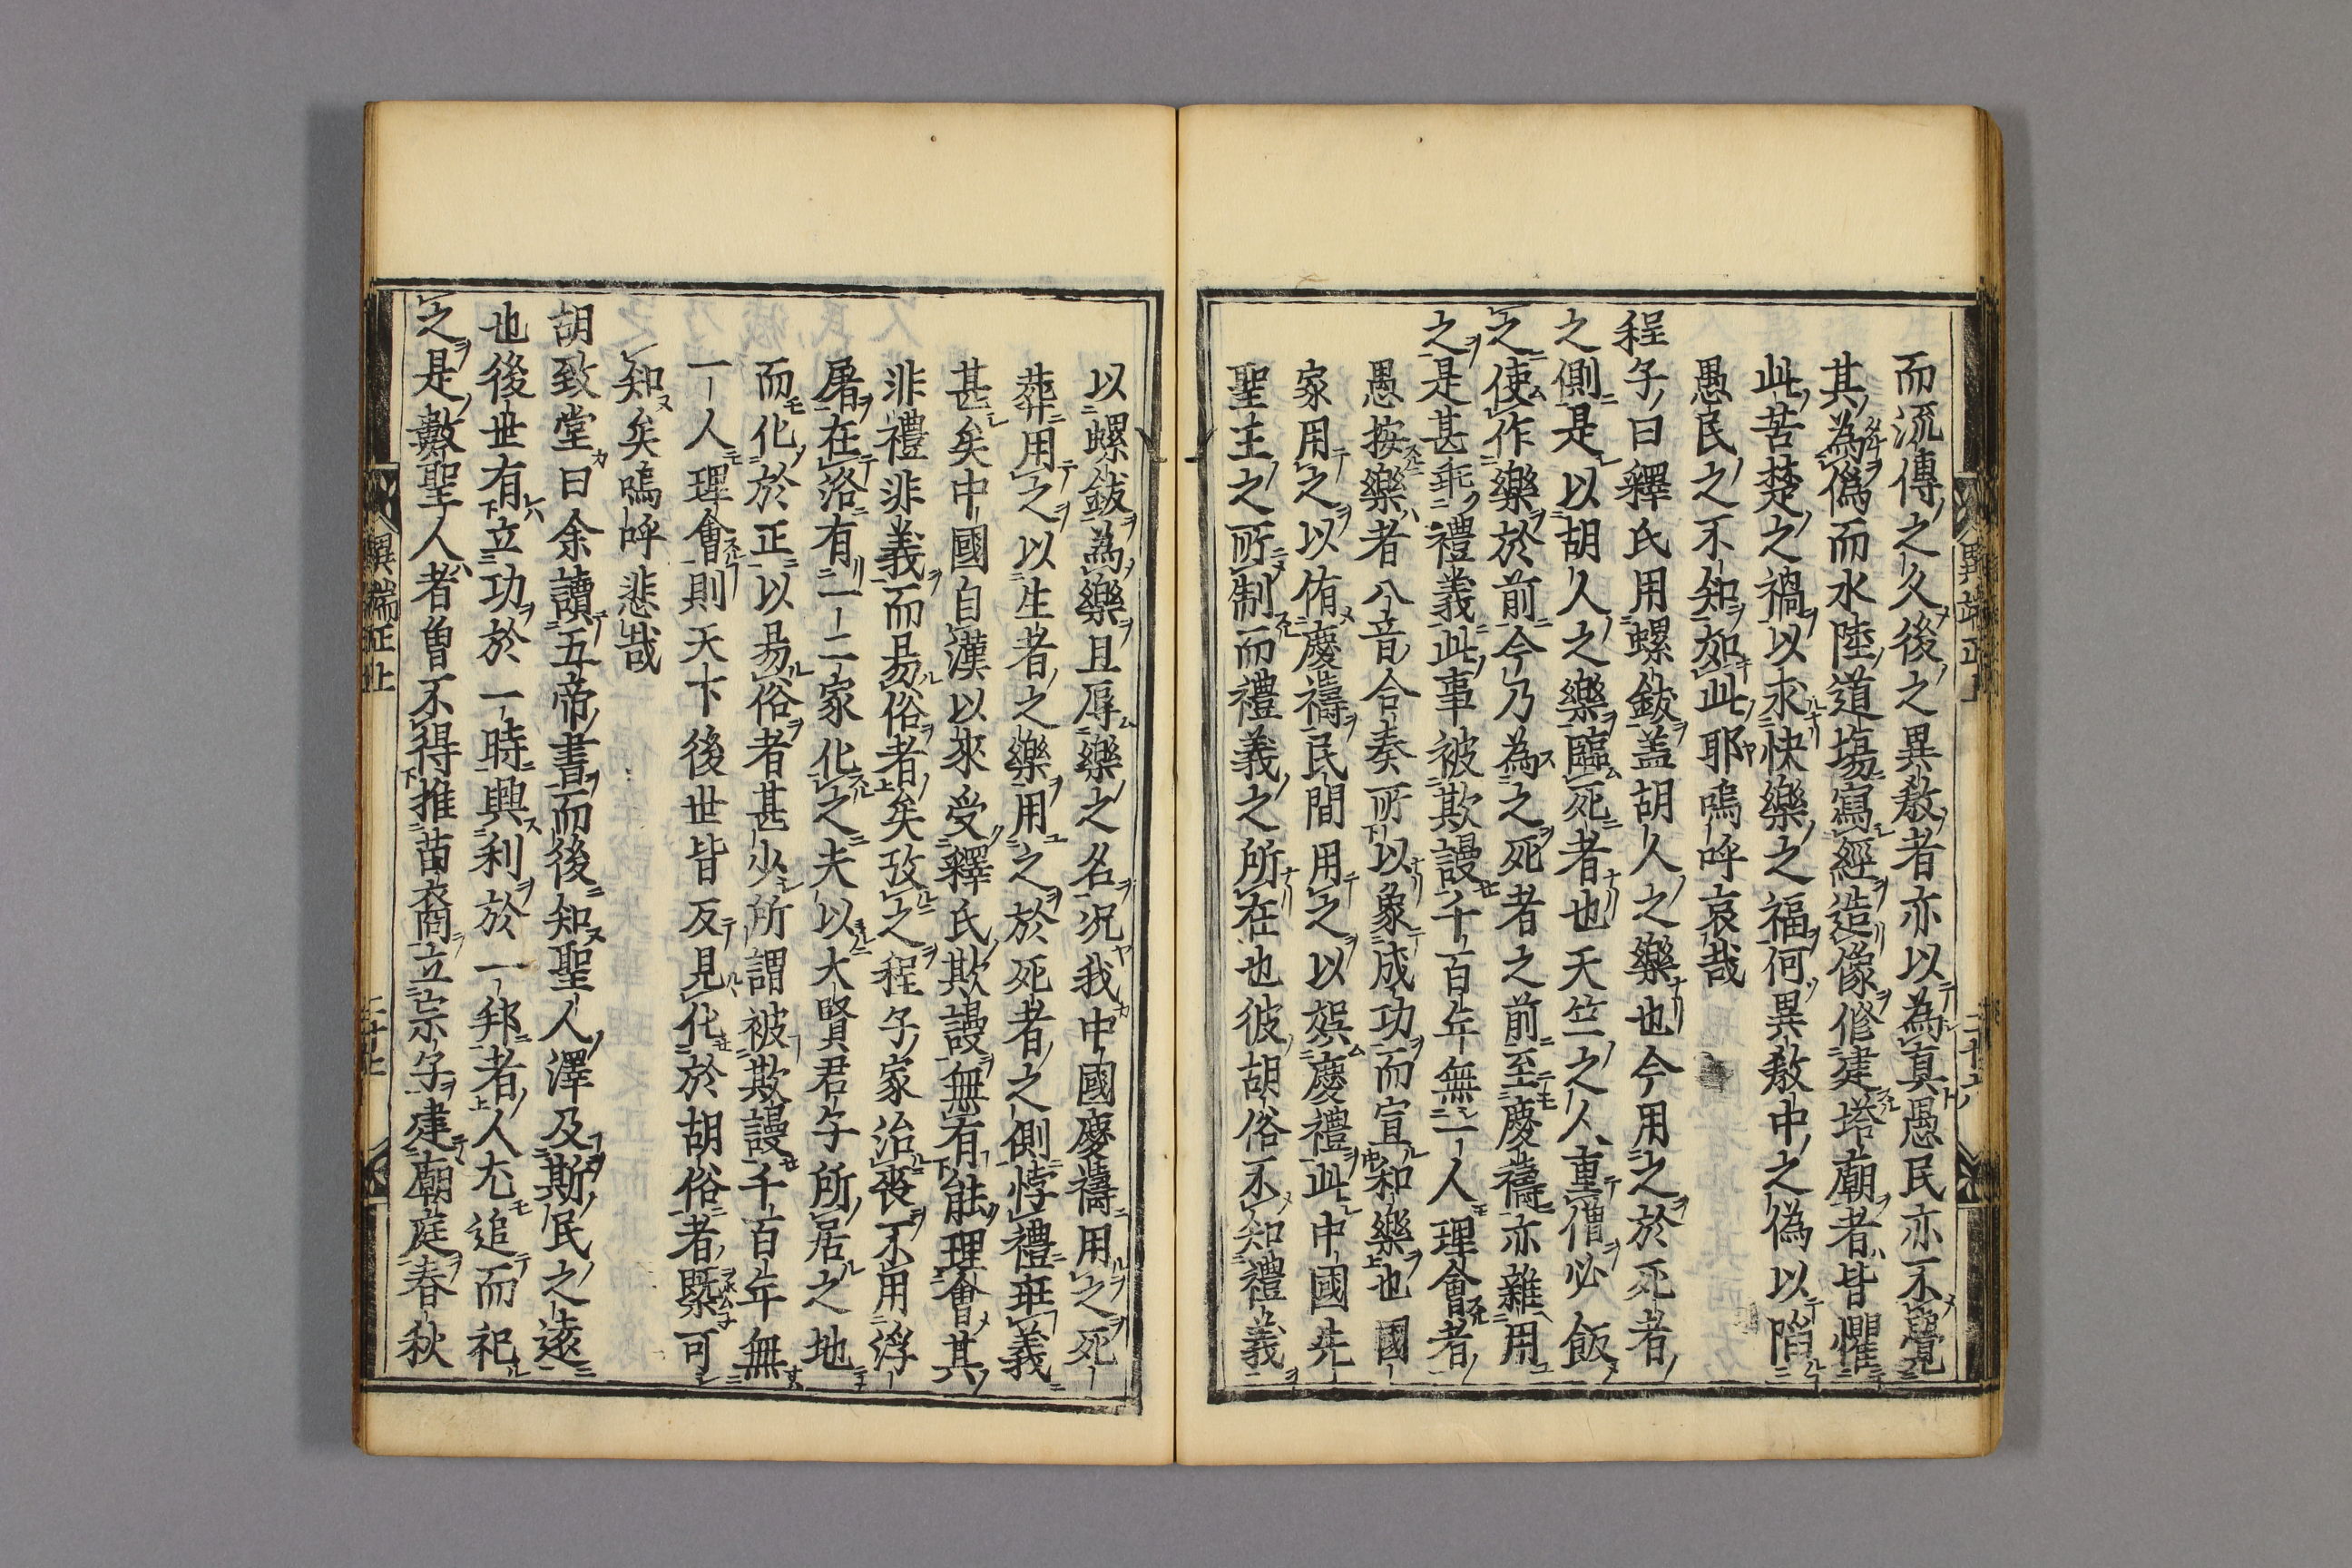 而流傳之久後之異教者亦以為真愚民亦不覺
其為偽而水陸道場寫經造像修建塔廟者皆懼
此苦楚之禍以求快樂之福何異教中之偽以陷
愚民之不知如此耶嗚呼哀哉
程子曰釋氏用螺鈸盖胡人之樂也今用之於死者
之側是以胡人之樂臨死者也天竺之人重僧必飯
之使作樂於前今乃為之死者之前至慶禱亦雜用
之是甚乖禮義此事被欺謾千百年無一人理會者
愚按樂者八音合奏所以象成功而宣和樂也國
家用之以侑慶禱民間用之以娯慶禮此中國先
聖王之所制而禮義之所在也彼胡俗不知禮義
以螺鈸為樂且辱樂之名况我中國慶禱用之死
葬用之以生者之樂用之於死者之側悖禮班義
甚矣中國自漢以來受釋氏欺謾無有能理會其
非禮非義而易俗者矣攷之程子家治喪不用浮
屠在洛有一二家化之夫以大賢君子所居之地
而化於正以易俗者甚少所謂被欺謾千百年無
一人理會則天下後世皆反見化於胡俗者槩可
知矣嗚呼悲哉
胡致堂曰余讀五帝書而後知聖人澤及斯民之遠
也後世有立功於一時興利於一邦者人尤追而祀
之是數聖人者曽不得推苗裔立宗子建廟庭春秋
異端正
異端正上